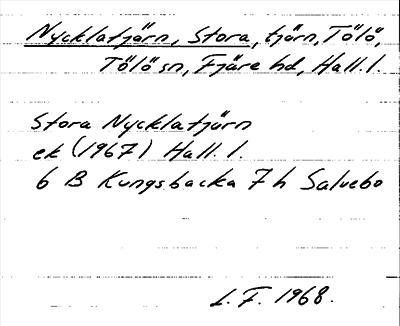 Nycklatjärn, Stora, tjärn, Tölö,
Tölö sn, Fjäre hd, Hall. l.
Stora Nycklatjärn
ek (1967) Hall. l.
6 B Kungsbacka 7 h Saluebo
L. F. 1968.